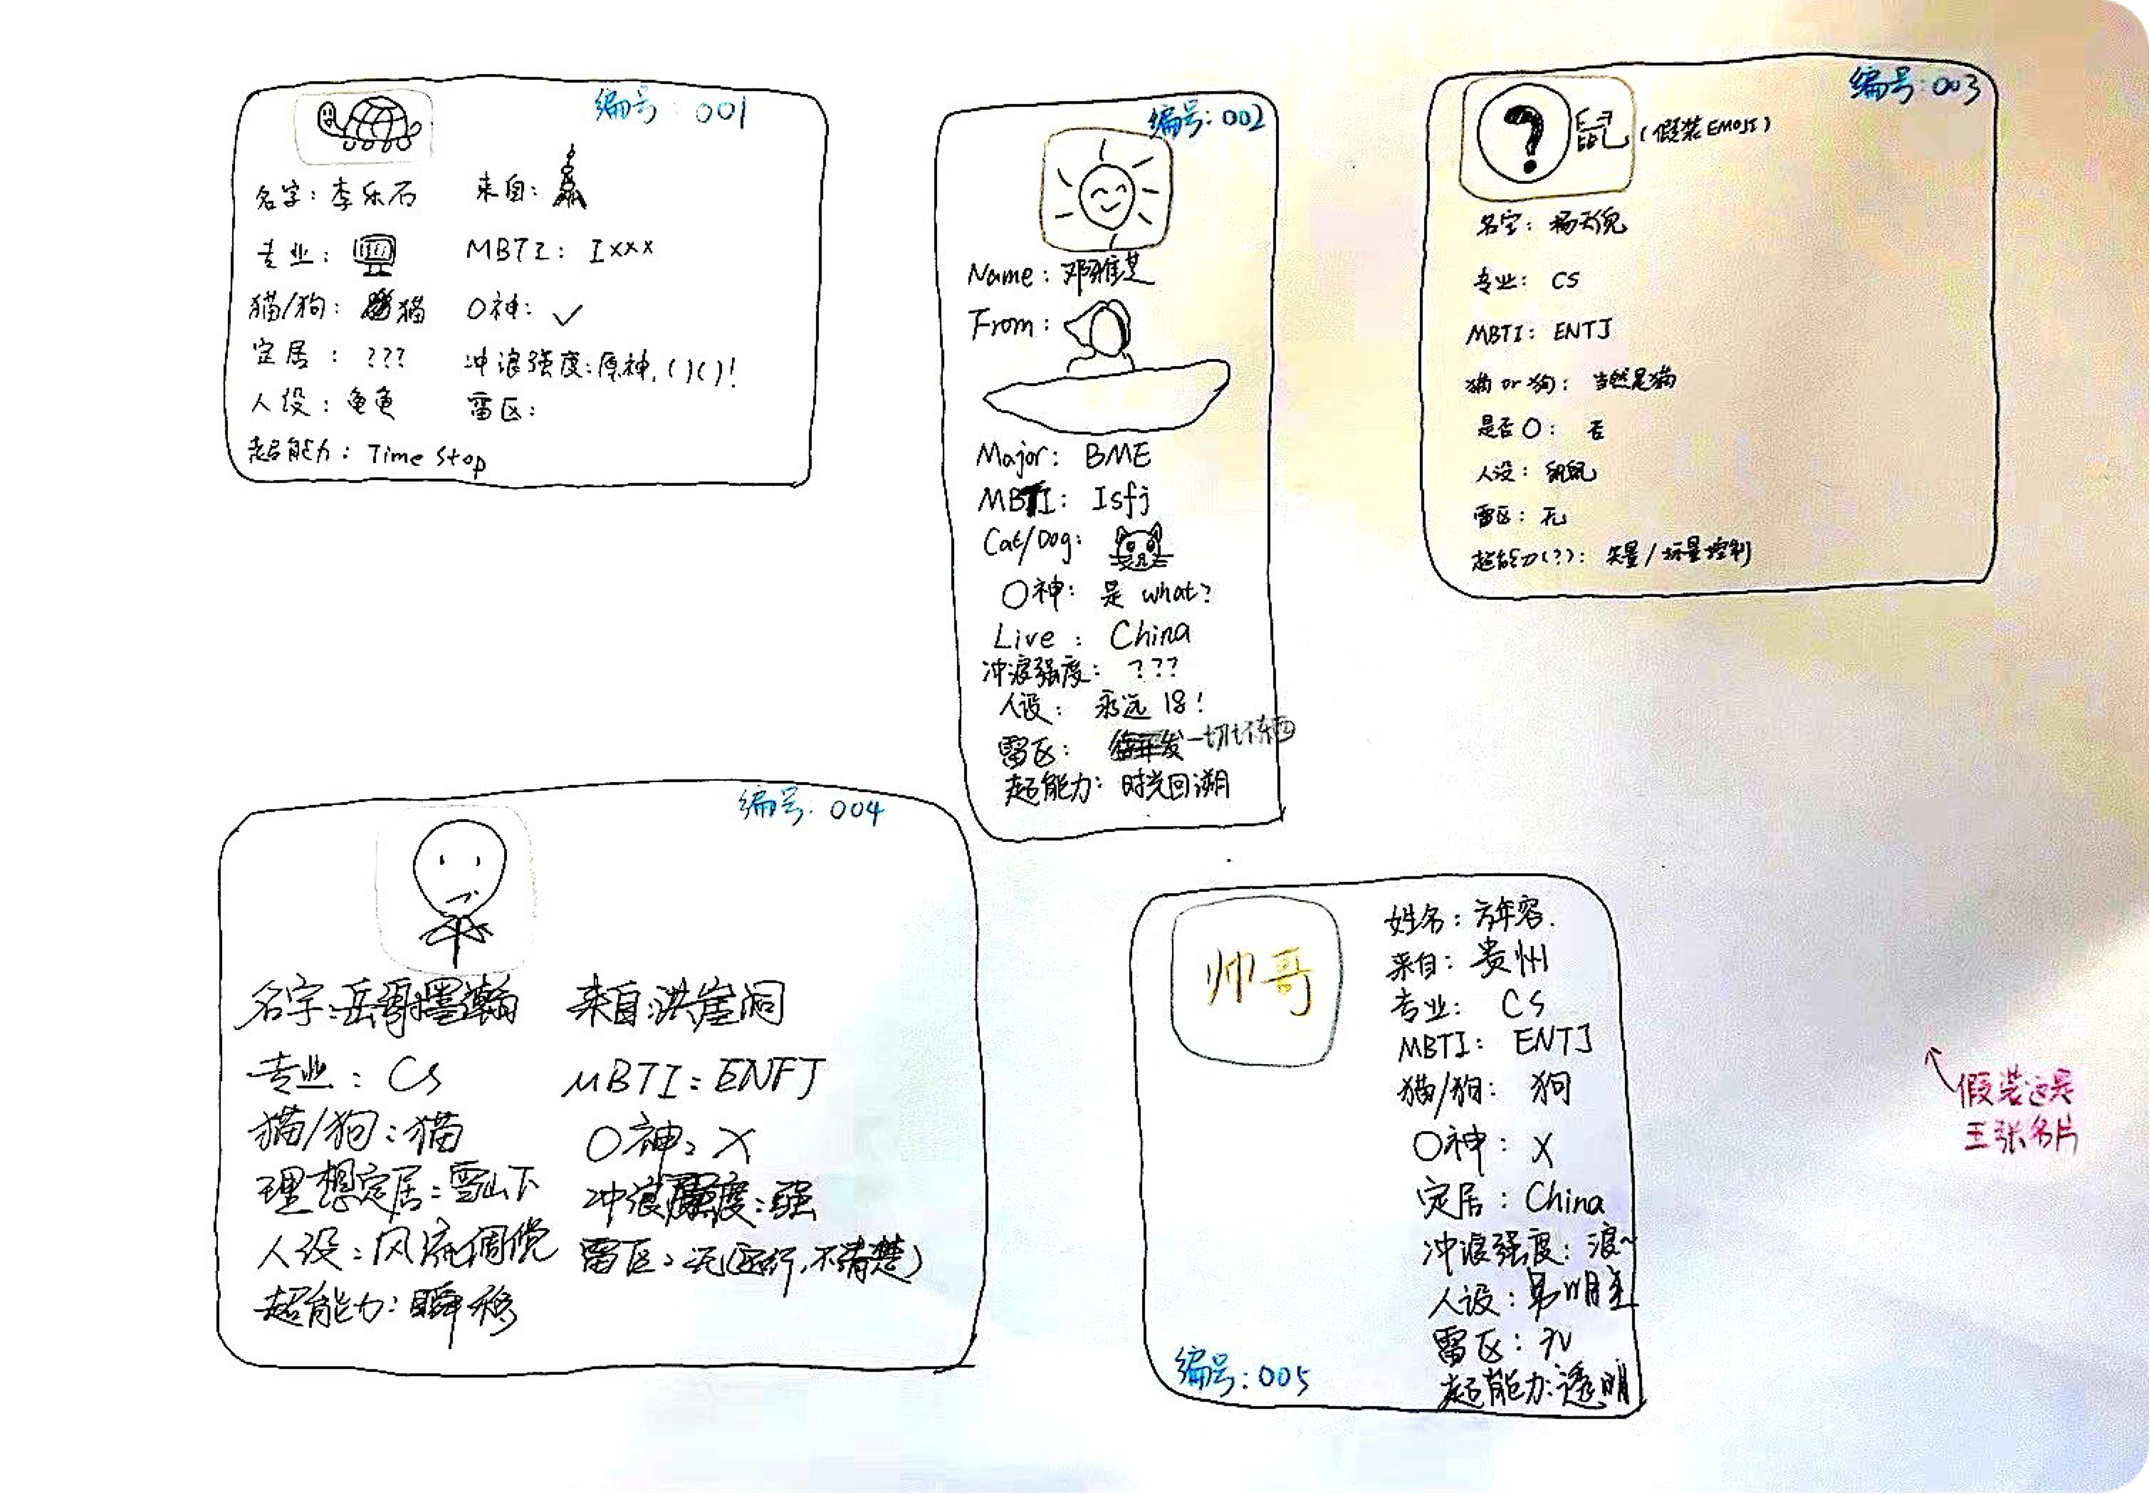 编号: 001
名字: 李乐石 来自:
专业: MBTI: Ixxx
猫/狗: 猫 O神: ✓
定居: ??? 冲浪强度: 原神, ( ) ( ) !
人设: 龟龟 雷区:
超能力: Time Stop
编号: 002
Name: 邓雅芝
From:
Major: BME
MBTI: Isfj
Cat/Dog:
O神: 是 what?
Live: China
冲浪强度: ???
人设: 永远 18!
雷区: 一切坏东西
超能力: 时光回溯
编号: 003
? 鼠 (假装EMOJI)
名字: 杨天倪
专业: CS
MBTI: ENTJ
猫 or 狗: 当然是猫
是否O: 否
人设: 鼠鼠
雷区: 无
超能力(?): 矢量/标量控制
编号: 004
名字: 岳 墨瀚 来自: 洪崖洞
专业: CS MBTI: ENFJ
猫/狗: 猫 O神: X
理想定居: 雪山下 冲浪强度: 强
人设: 风流倜傥 雷区: 无(运行,不清楚)
超能力: 瞬移
帅哥
姓名: 方年容.
来自: 贵州
专业: CS
MBTI: ENTJ
猫/狗: 狗
O神: X
定居: China
冲浪强度: 浪~
人设:
雷区: 无
超能力: 透明
编号: 005
假装这是
五张名片